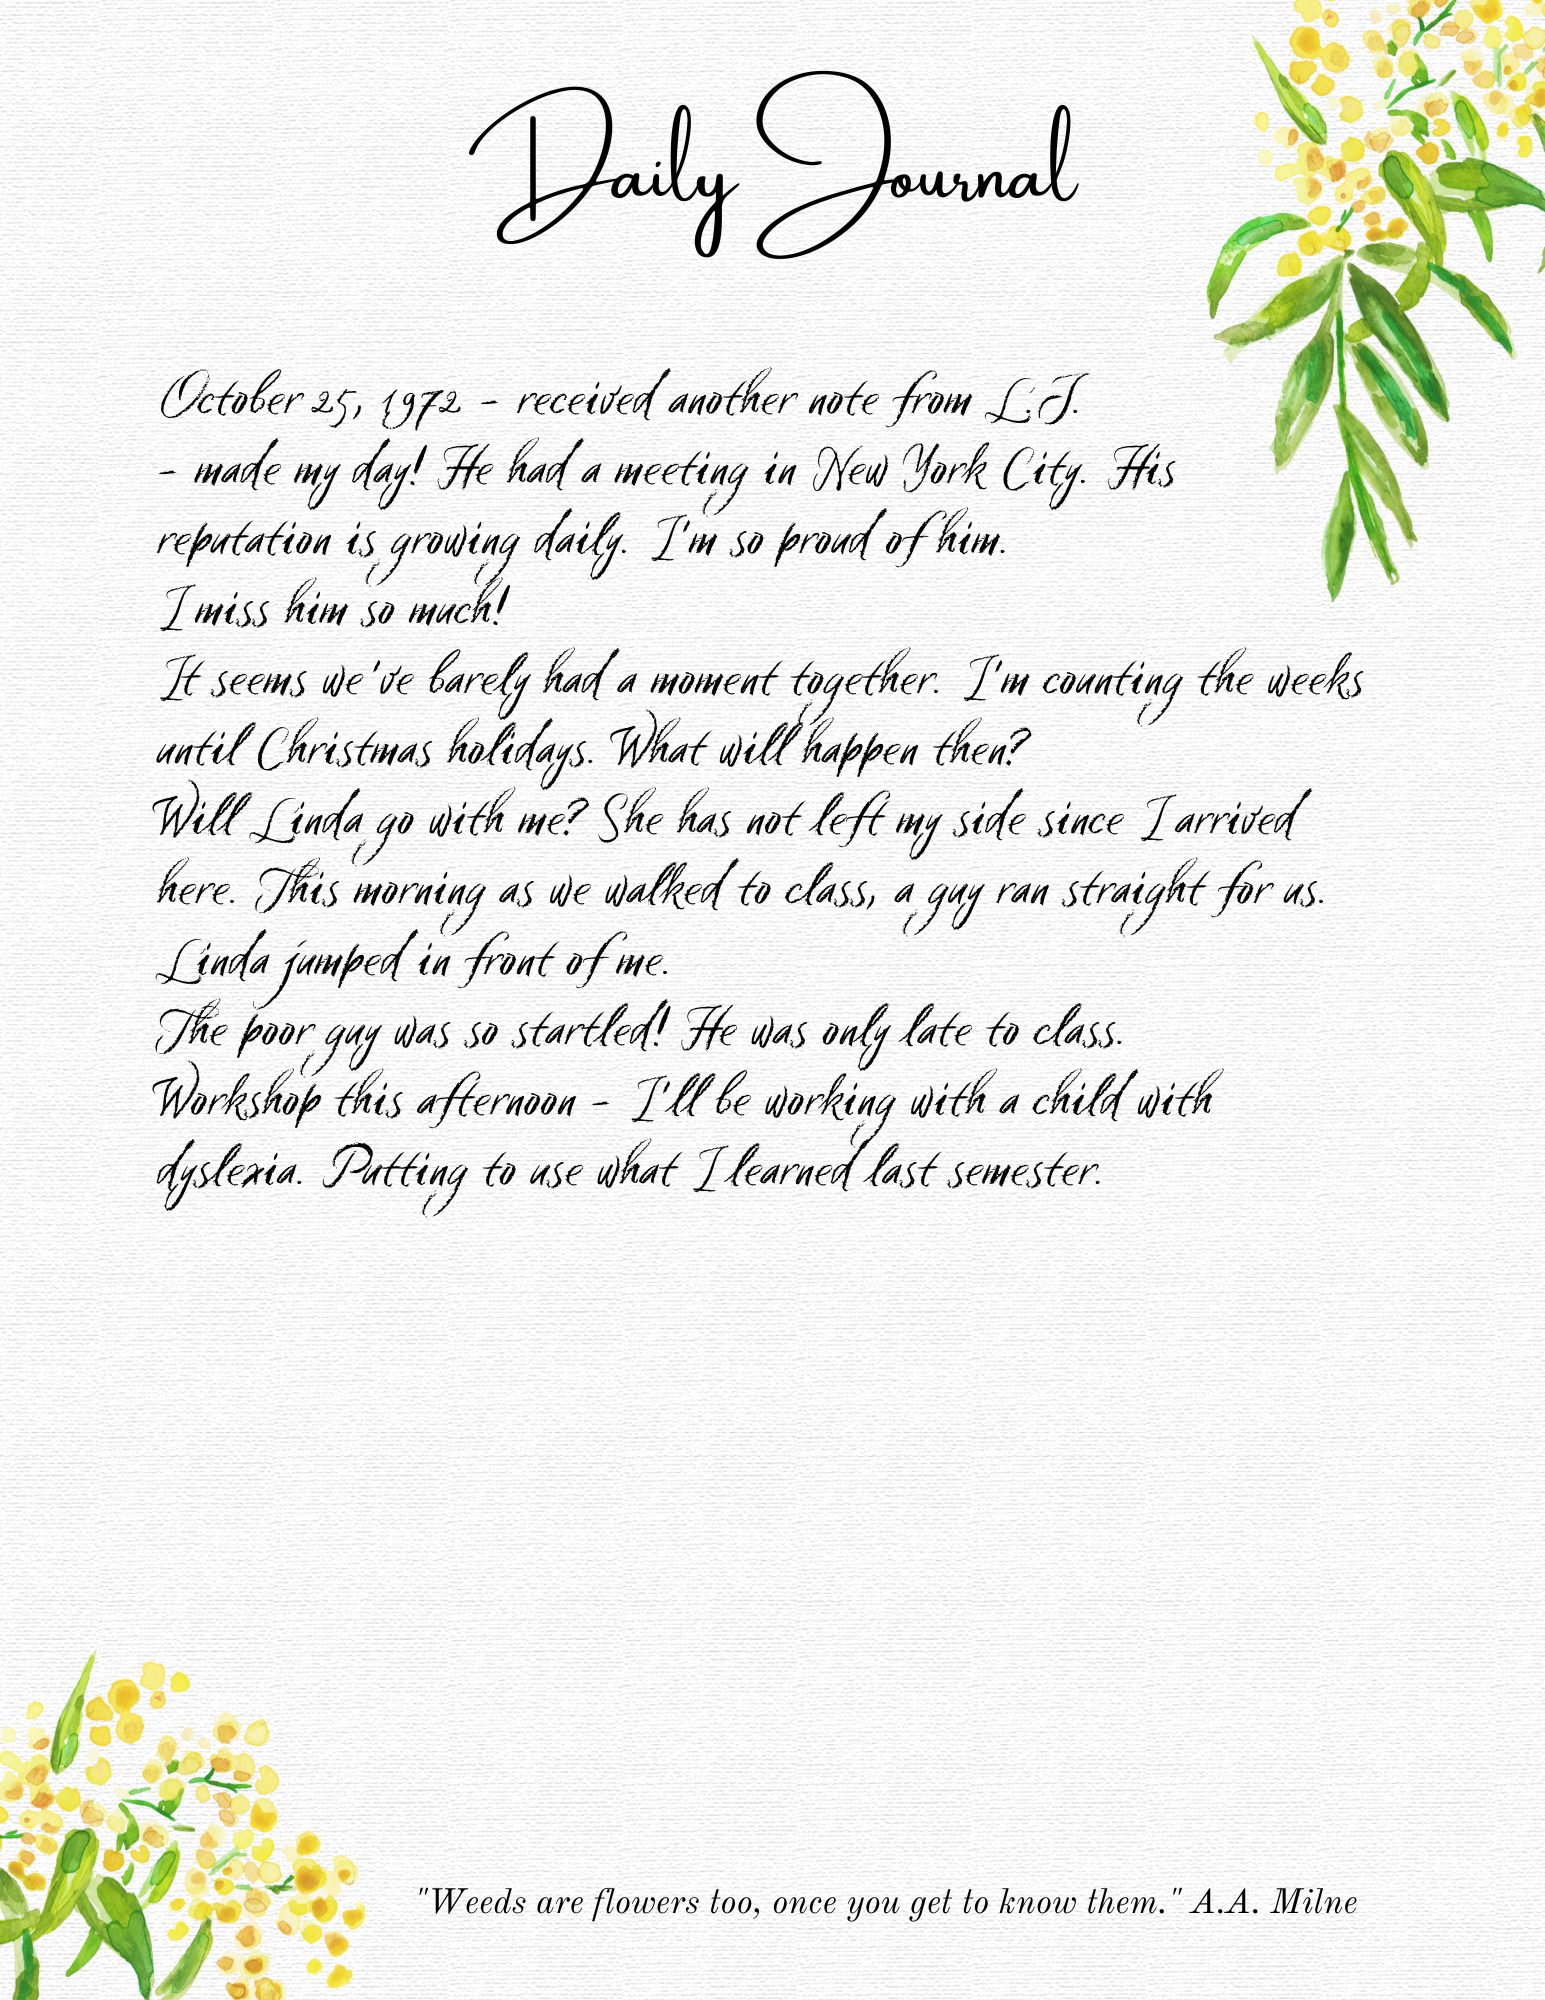 Daily Journal
October 25, 1972 - received another note from L.J.
- made my day! He had a meeting in New York City. His
reputation is growing daily. I'm so proud of him.
I miss him so much!
It seems we've barely had a moment together. I'm counting the weeks
until Christmas holidays. What will happen then?
Will Linda go with me? She has not left my side since I arrived
here. This morning as we walked to class, a guy ran straight for us.
Linda jumped in front of me.
The poor guy was so startled! He was only late to class.
Workshop this afternoon - I'll be working with a child with
dyslexia. Putting to use what I learned last semester.
"Weeds are flowers too, once you get to know them." A.A. Milne